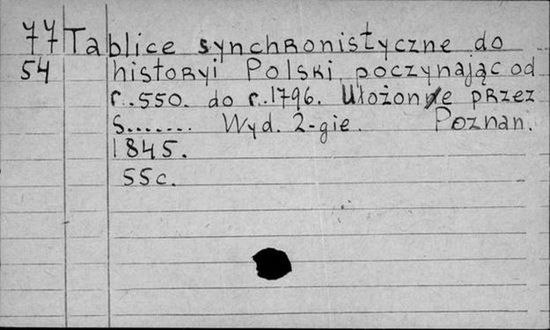 77 Tablice synchronistyczne do
54 historyi Polski, poczynając od
r..550. do r..1796. Ułożone przez
S....... Wyd. 2-gie. Poznan.
1845.
55c.